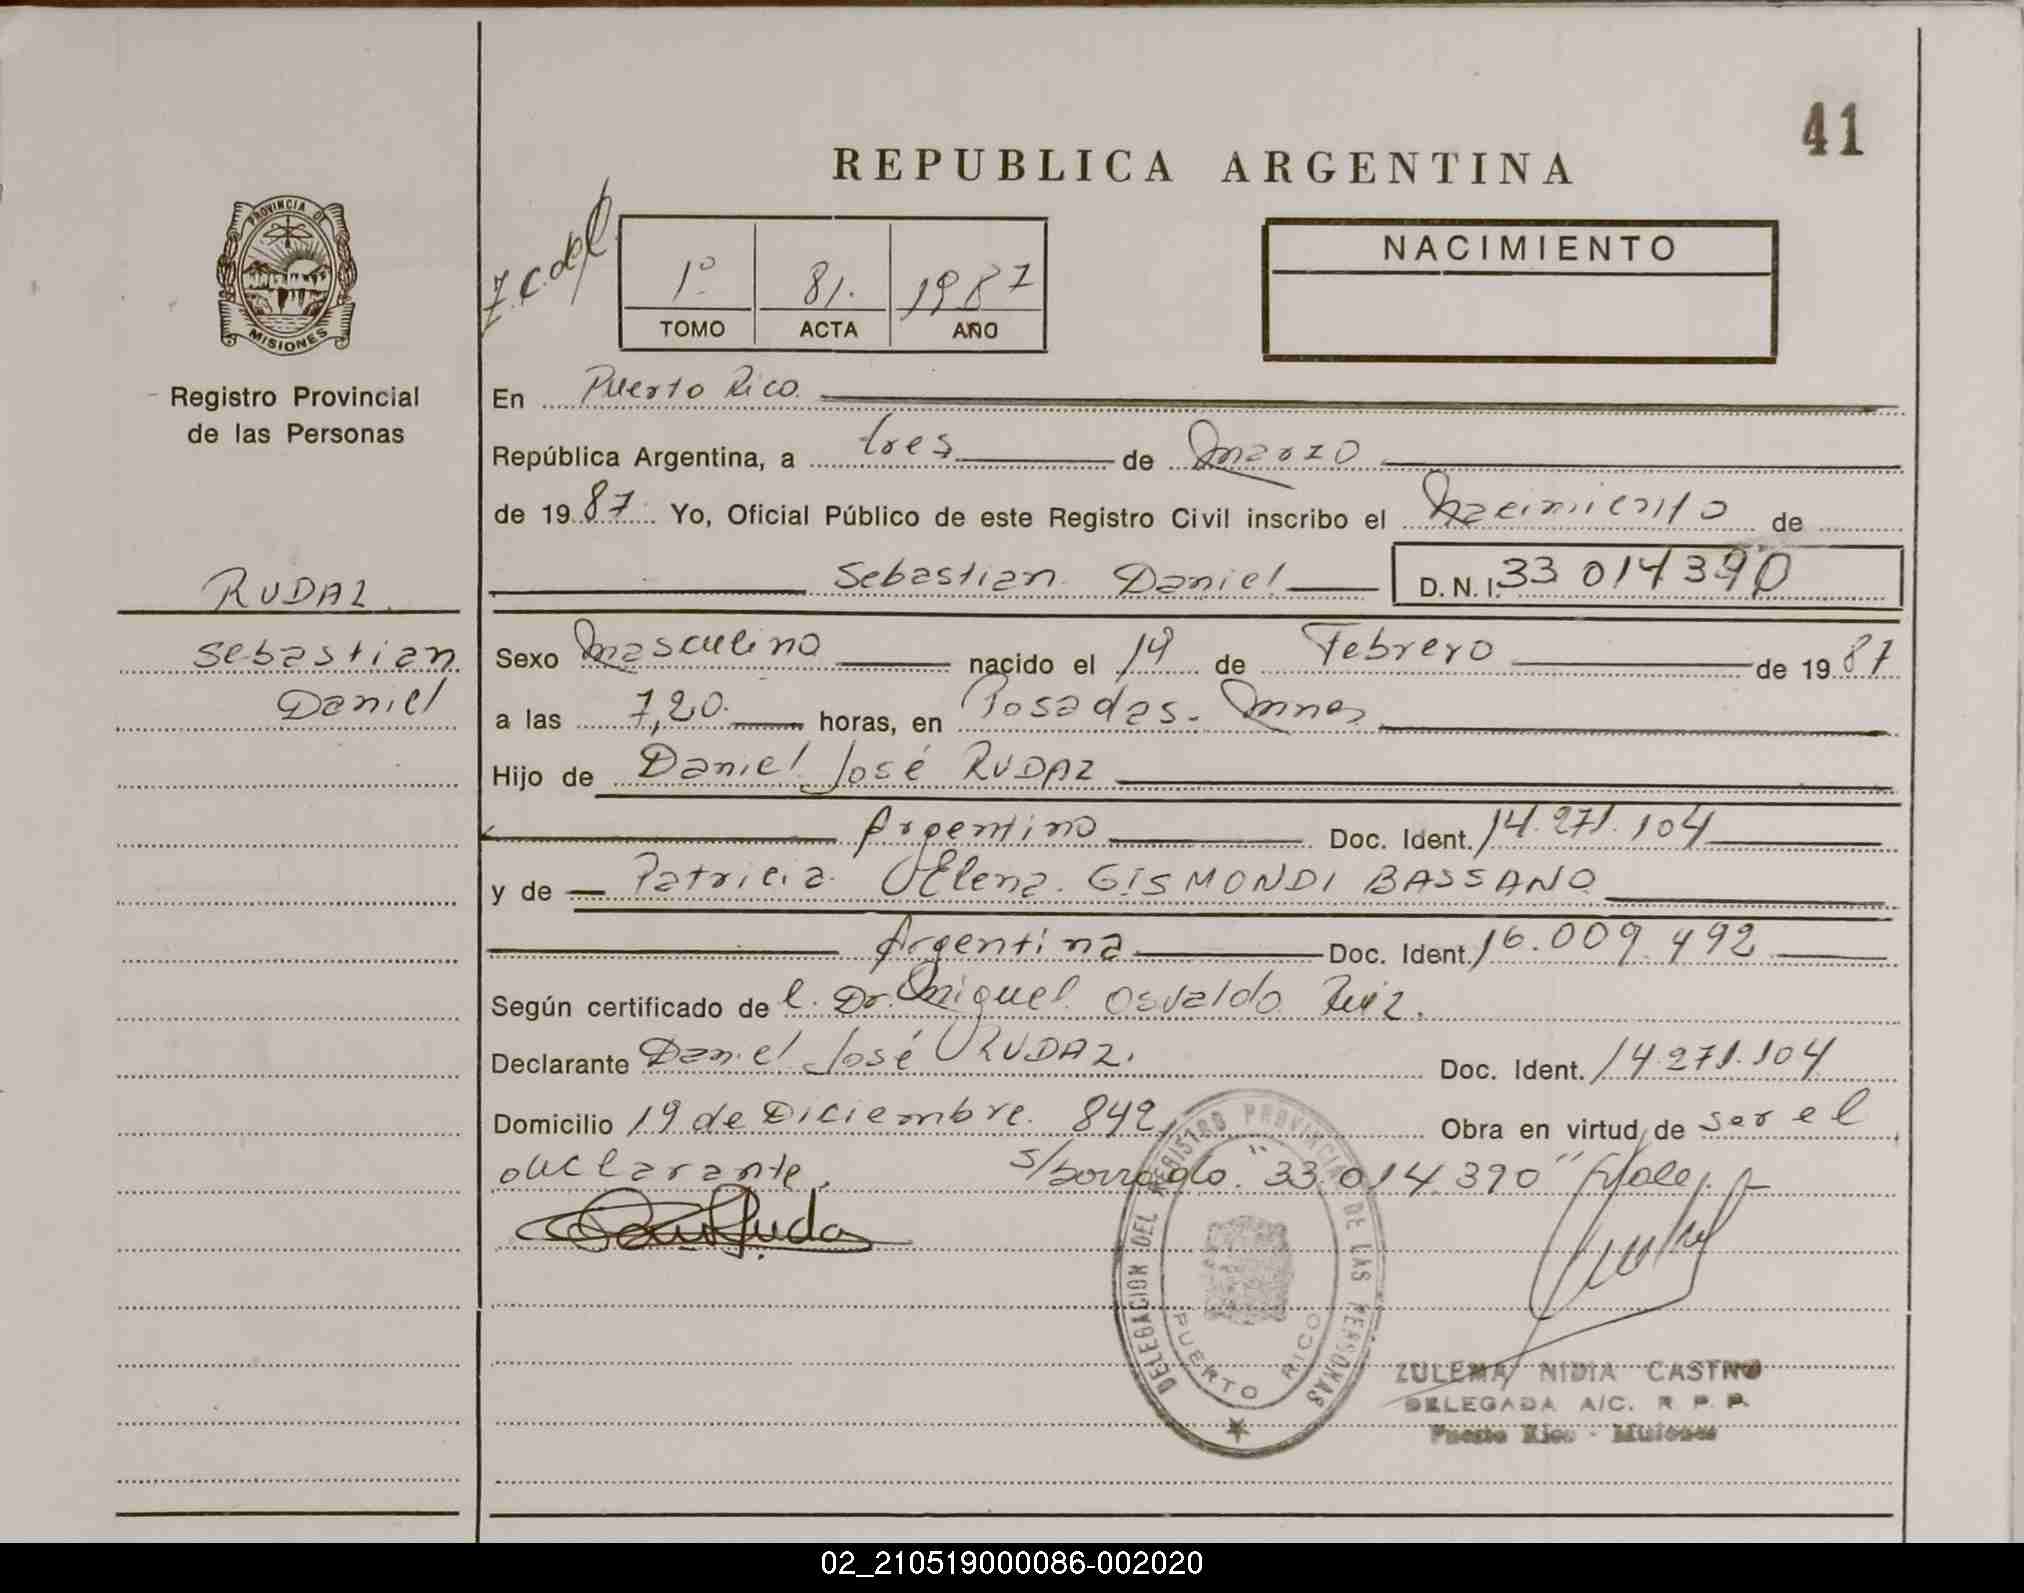 41
REPUBLICA ARGENTINA
PROVINCIA DE
MISIONES
Registro Provincial
de las Personas
NACIMIENTO
1º 81. 1987
TOMO ACTA AÑO
En Puerto Rico.
República Argentina, a tres de Marzo
de 1987. Yo, Oficial Público de este Registro Civil inscribo el Nacimiento de
Sebastian Daniel D. N. I. 33 014 390
RUDAZ.
Sebastian
Daniel
Sexo Masculino nacido el 14 de Febrero de 1987
a las 7,20. horas, en Posadas. Mnes
Hijo de Daniel José RUDAZ
Argentino Doc. Ident. 14.271.104
y de Patricia Elena. GISMONDI BASSANO
Argentina Doc. Ident. 16.009.492
Según certificado de l. Dr. Miguel Osvaldo Ruiz.
Declarante Daniel José RUDAZ. Doc. Ident. 14.271.104
Domicilio 19 de Diciembre. 842, Obra en virtud de ser el
declarante. s/borrado. 33.014.390 "Vale".
DELEGACION DEL REGISTRO PROVINCIAL DE LAS PERSONAS
PUERTO RICO
ZULEMA NIDIA CASTRO
DELEGADA A/C. R. P. P.
Puerto Rico - Misiones
02_210519000086-002020